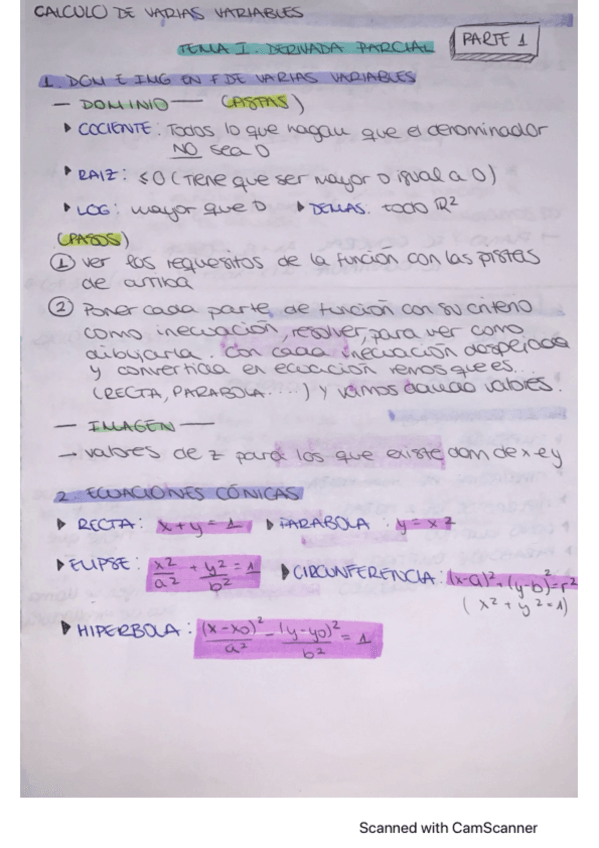 CALCULO DE VARIAS VARIABLES
TEMA I. DERIVADA PARCIAL
PARTE 1
1. DOM E IMG EN F DE VARIAS VARIABLES
— DOMINIO — (PISTAS)
▸ COCIENTE: Todos lo que hagan que el denominador
NO sea 0
▸ RAIZ: ≤0 (Tiene que ser mayor o igual a 0)
▸ LOG: mayor que 0 ▸ DEMAS: todo ℝ²
(PASOS)
① Ver los requesitos de la función con las pistas
de arriba
② Poner cada parte de función con su criterio
como inecuación, resolver, para ver como
dibujarla. Con cada inecuación despejada
y convertida en ecuacion vemos que es...
(RECTA, PARABOLA....) y vamos dando valores.
— IMAGEN —
→ valores de z para los que existe dom de x e y
2. ECUACIONES CÓNICAS
▸ RECTA: x+y=1 ▸ PARABOLA: y=x²
▸ ELIPSE: x²/a² + y²/b² = 1 ▸ CIRCUNFERENCIA: (x-a)²+(y-b)²=r²
(x²+y²=1)
▸ HIPERBOLA: (x-x0)²/a² - (y-y0)²/b² = 1
Scanned with CamScanner